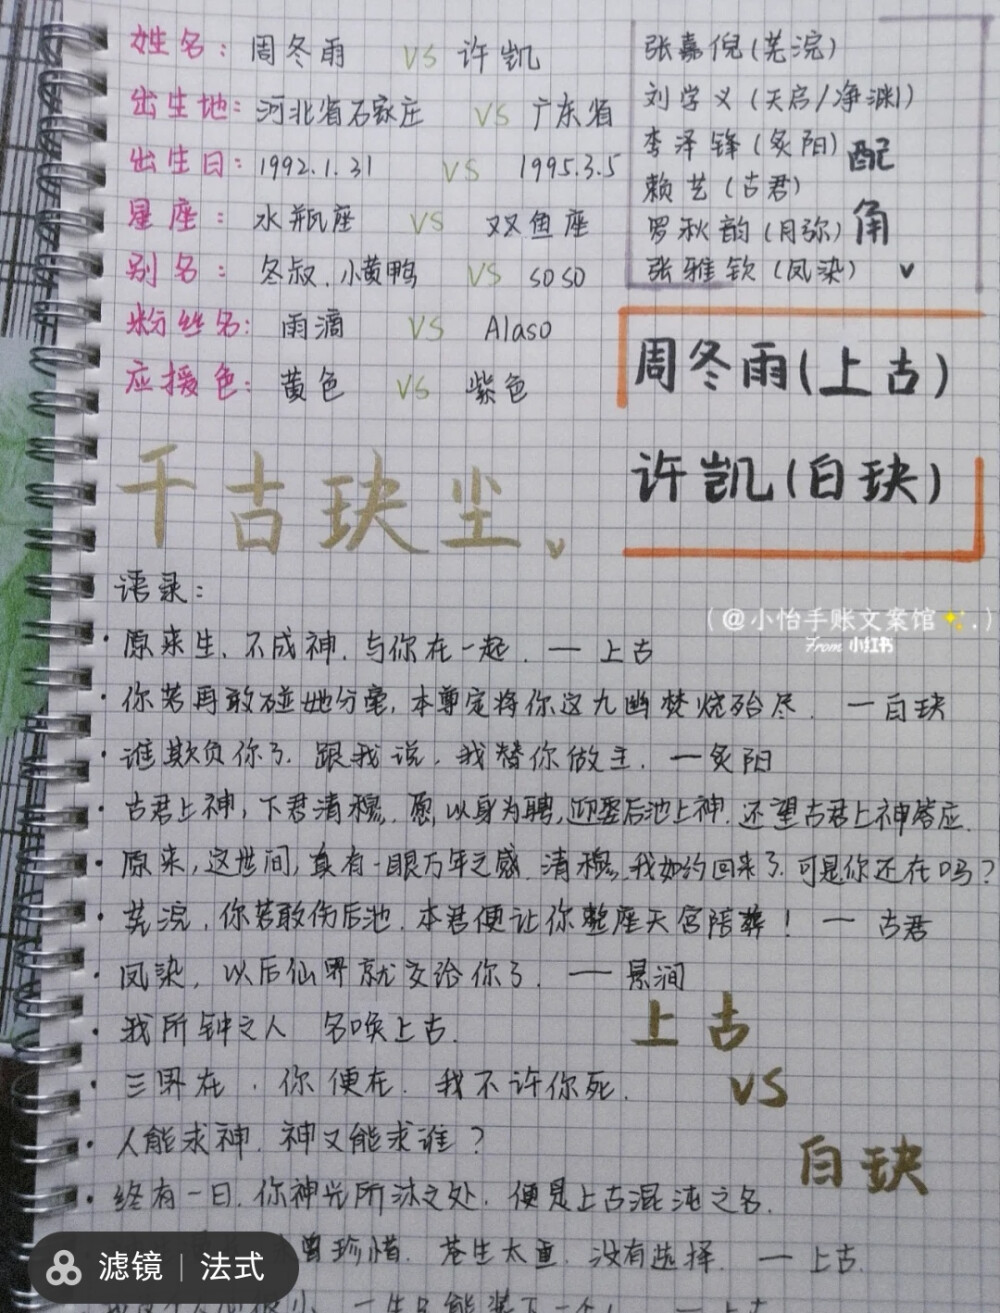 姓名：周冬雨 VS 许凯
出生地：河北省石家庄 VS 广东省
出生日：1992.1.31 VS 1995.3.5
星座：水瓶座 VS 双鱼座
别名：冬叔.小黄鸭 VS soso
粉丝名：雨滴 VS Alaso
应援色：黄色 VS 紫色
张嘉倪(芜浣)
刘学义(天启/净渊)
李泽锋(炙阳)
赖艺(古君)
罗秋韵(月弥)
张雅钦(凤染)
配角
周冬雨(上古)
许凯(白玦)
千古玦尘
语录：
(@小怡手账文案馆✨.)
From 小红书
·原来生.不成神.与你在一起.一上古
·你若再敢碰她分毫,本尊定将你这九幽焚烧殆尽.一白玦
·谁欺负你了.跟我说,我替你做主.一炙阳
·古君上神,下君清穆.愿以身为聘,迎娶后池上神.还望古君上神答应.
·原来,这世间,真有一眼万年之感.清穆.我如约回来了.可是你还在吗?
·芜浣,你若敢伤后池.本君便让你整座天宫陪葬!一古君
·凤染,以后仙界就交给你了.一景涧
·我所钟之人 名唤上古.
·三界在.你便在.我不许你死.
·人能求神.神又能求谁?
·终有一日.你神光所沐之处.便是上古混沌之名.
上古
VS
白玦
曾珍惜.苍生太重.没有选择.一上古.
一生只能装下一个
滤镜|法式